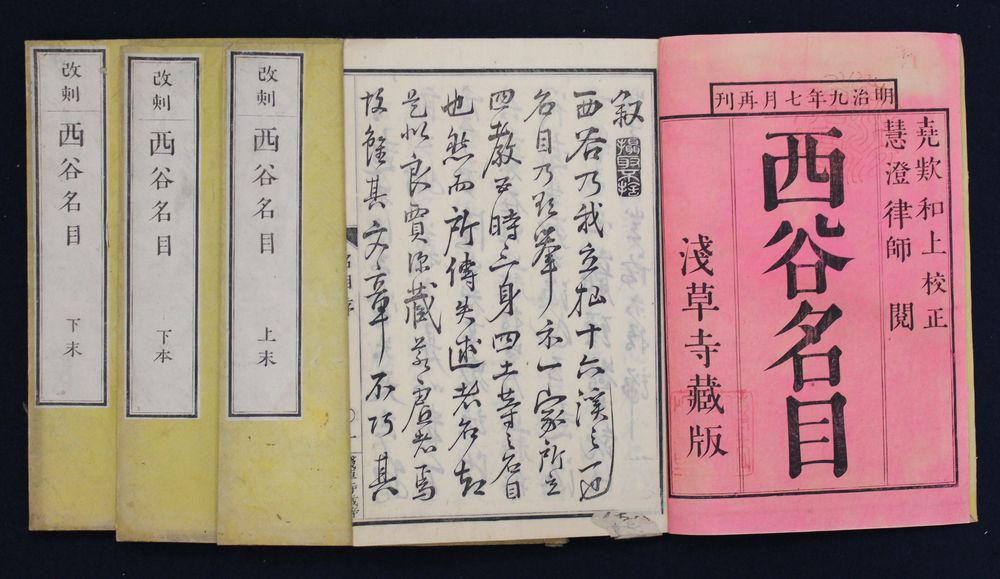 明治九年七月再刊
堯歎和上校正
慧澄律師閲
西谷名目
淺草寺藏版
叙
西谷乃我立杣十六溪之一也
名目乃欲挙示一家所立
四教五時三身四土等之名目
也然而所傳失述者名却
是以良賈深藏若虚者焉
故雖其文章不巧其
名目序
改刻 西谷名目 上末
改刻 西谷名目 下本
改刻 西谷名目 下末